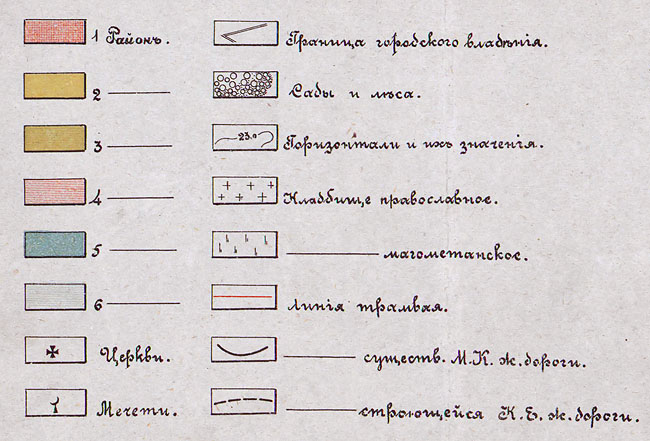 1 Районъ.
2
3
4
5
6
Церкви.
Мечети.
Граница городского владѣнія.
Сады и лѣса.
23.0
Горизонтали и ихъ значенія.
Кладбище православное.
магометанское.
Линія трамвая.
существ. М.К. ж. дороги.
строющейся К.Б. ж. дороги.